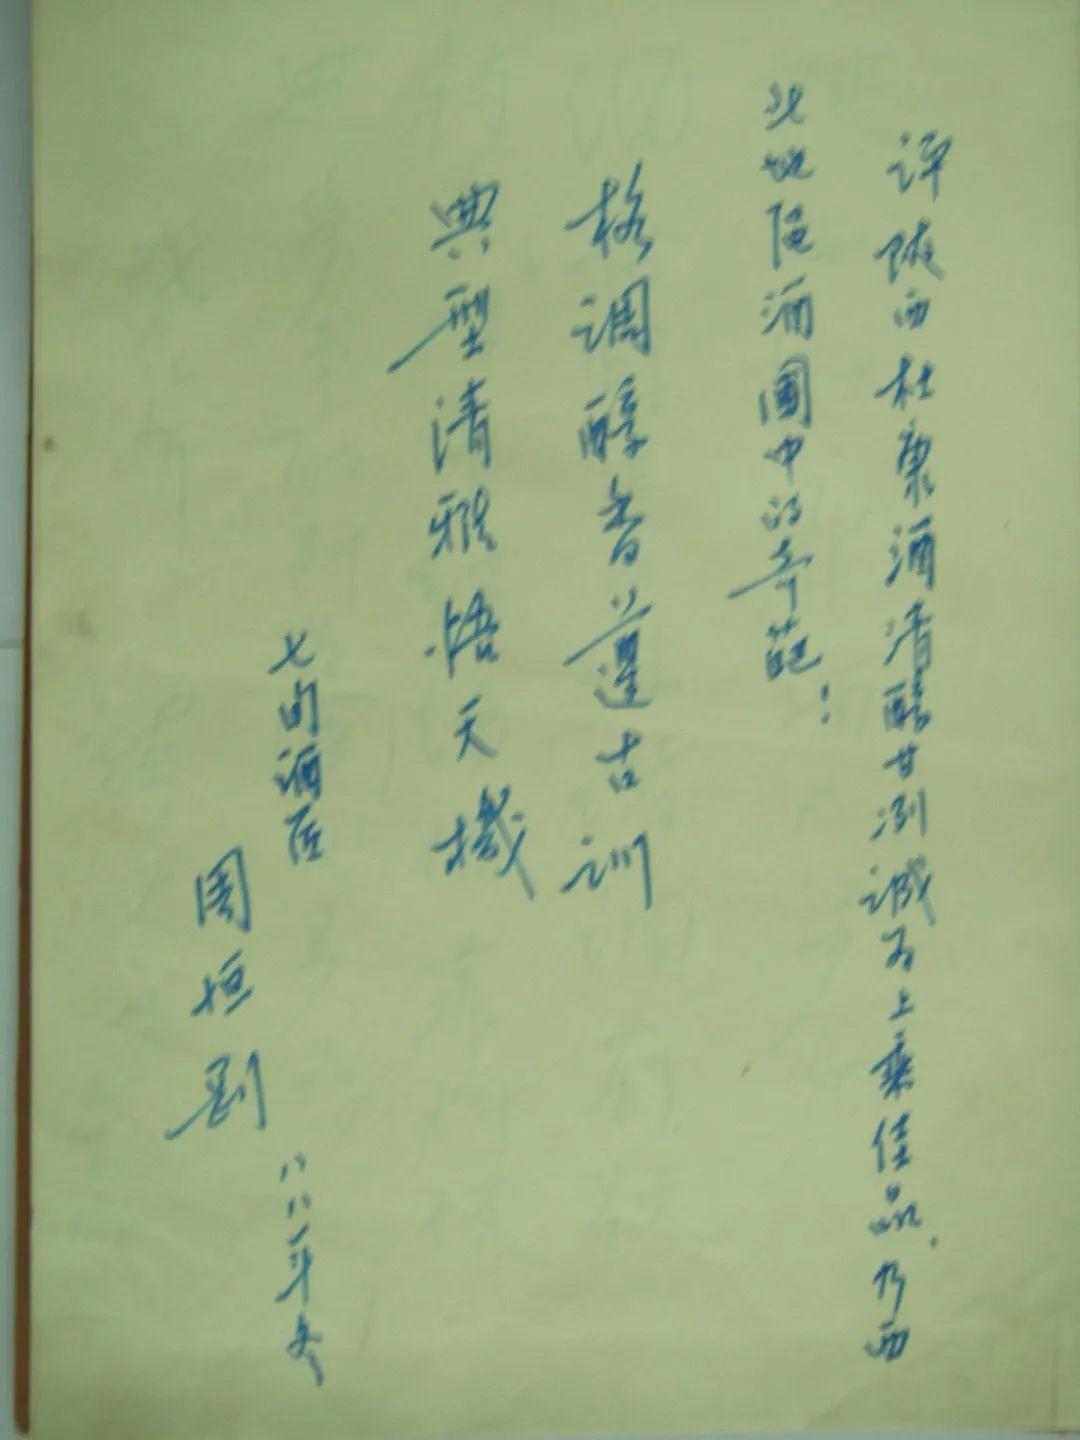 评陕西杜康酒清醇甘冽诚为上乘佳品，乃西
北地区酒圃中的奇葩！
格调醇香遵古训
典型清雅悟天機
七旬酒匠
周恒刚
八八年冬